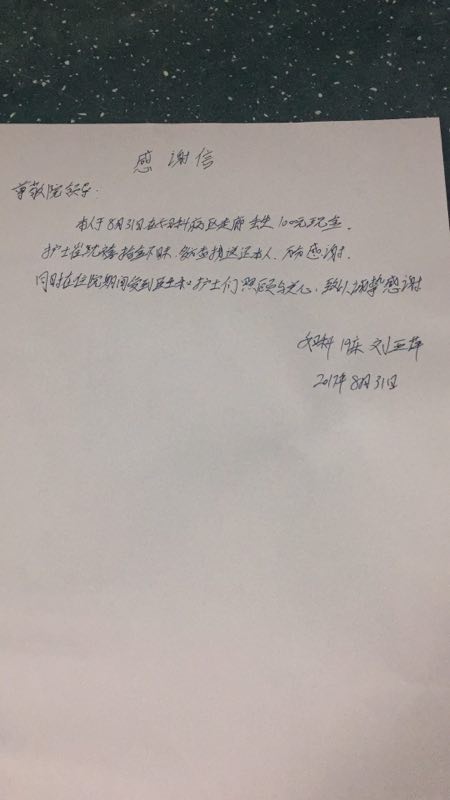 感谢信
尊敬院领导:
本人于8月31日在妇科病区走廊丢失100元现金,
护士崔 拾金不昧, 送还本人, 万分感谢.
同时在住院期间受到医生和护士们照顾与关心, 致以诚挚感谢
妇科19床 刘亚萍
2017年8月31日